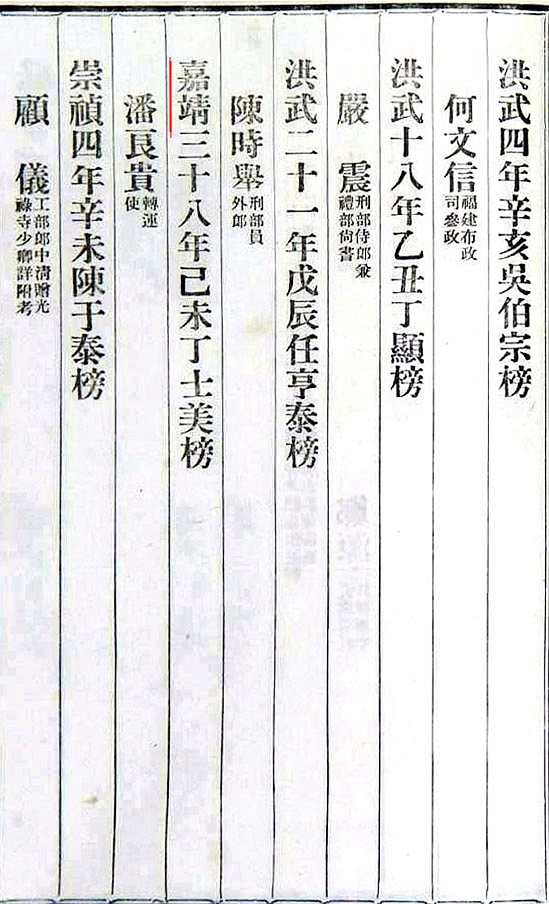 洪武四年辛亥吳伯宗榜
何文信福建布政司參政
洪武十八年乙丑丁顯榜
嚴震刑部侍郎兼禮部尚書
洪武二十一年戊辰任亨泰榜
陳時舉刑部員外郎
嘉靖三十八年己未丁士美榜
潘良貴轉運使
崇禎四年辛未陳于泰榜
顧儀工部郎中淸贈光祿寺少卿詳附考